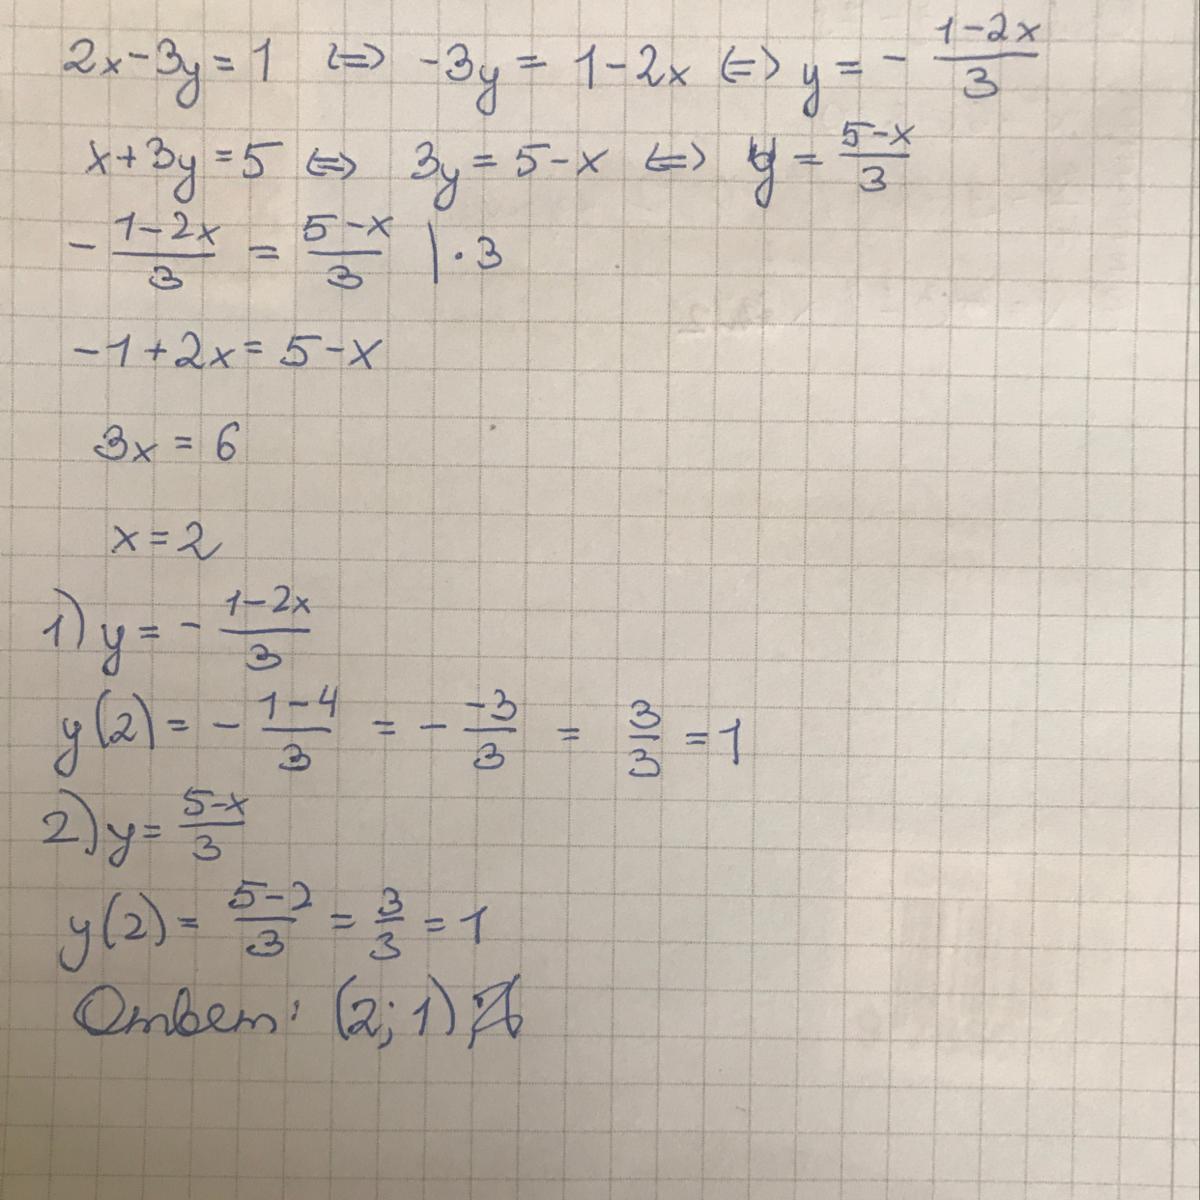 2x-3y=1 <=> -3y = 1-2x <=> y = - (1-2x)/3
x+3y=5 <=> 3y = 5-x <=> y = (5-x)/3
- (1-2x)/3 = (5-x)/3 | · 3
-1+2x = 5-x
3x = 6
x = 2
1) y = - (1-2x)/3
y(2) = - (1-4)/3 = - (-3)/3 = 3/3 = 1
2) y = (5-x)/3
y(2) = (5-2)/3 = 3/3 = 1
Ответ: (2; 1)